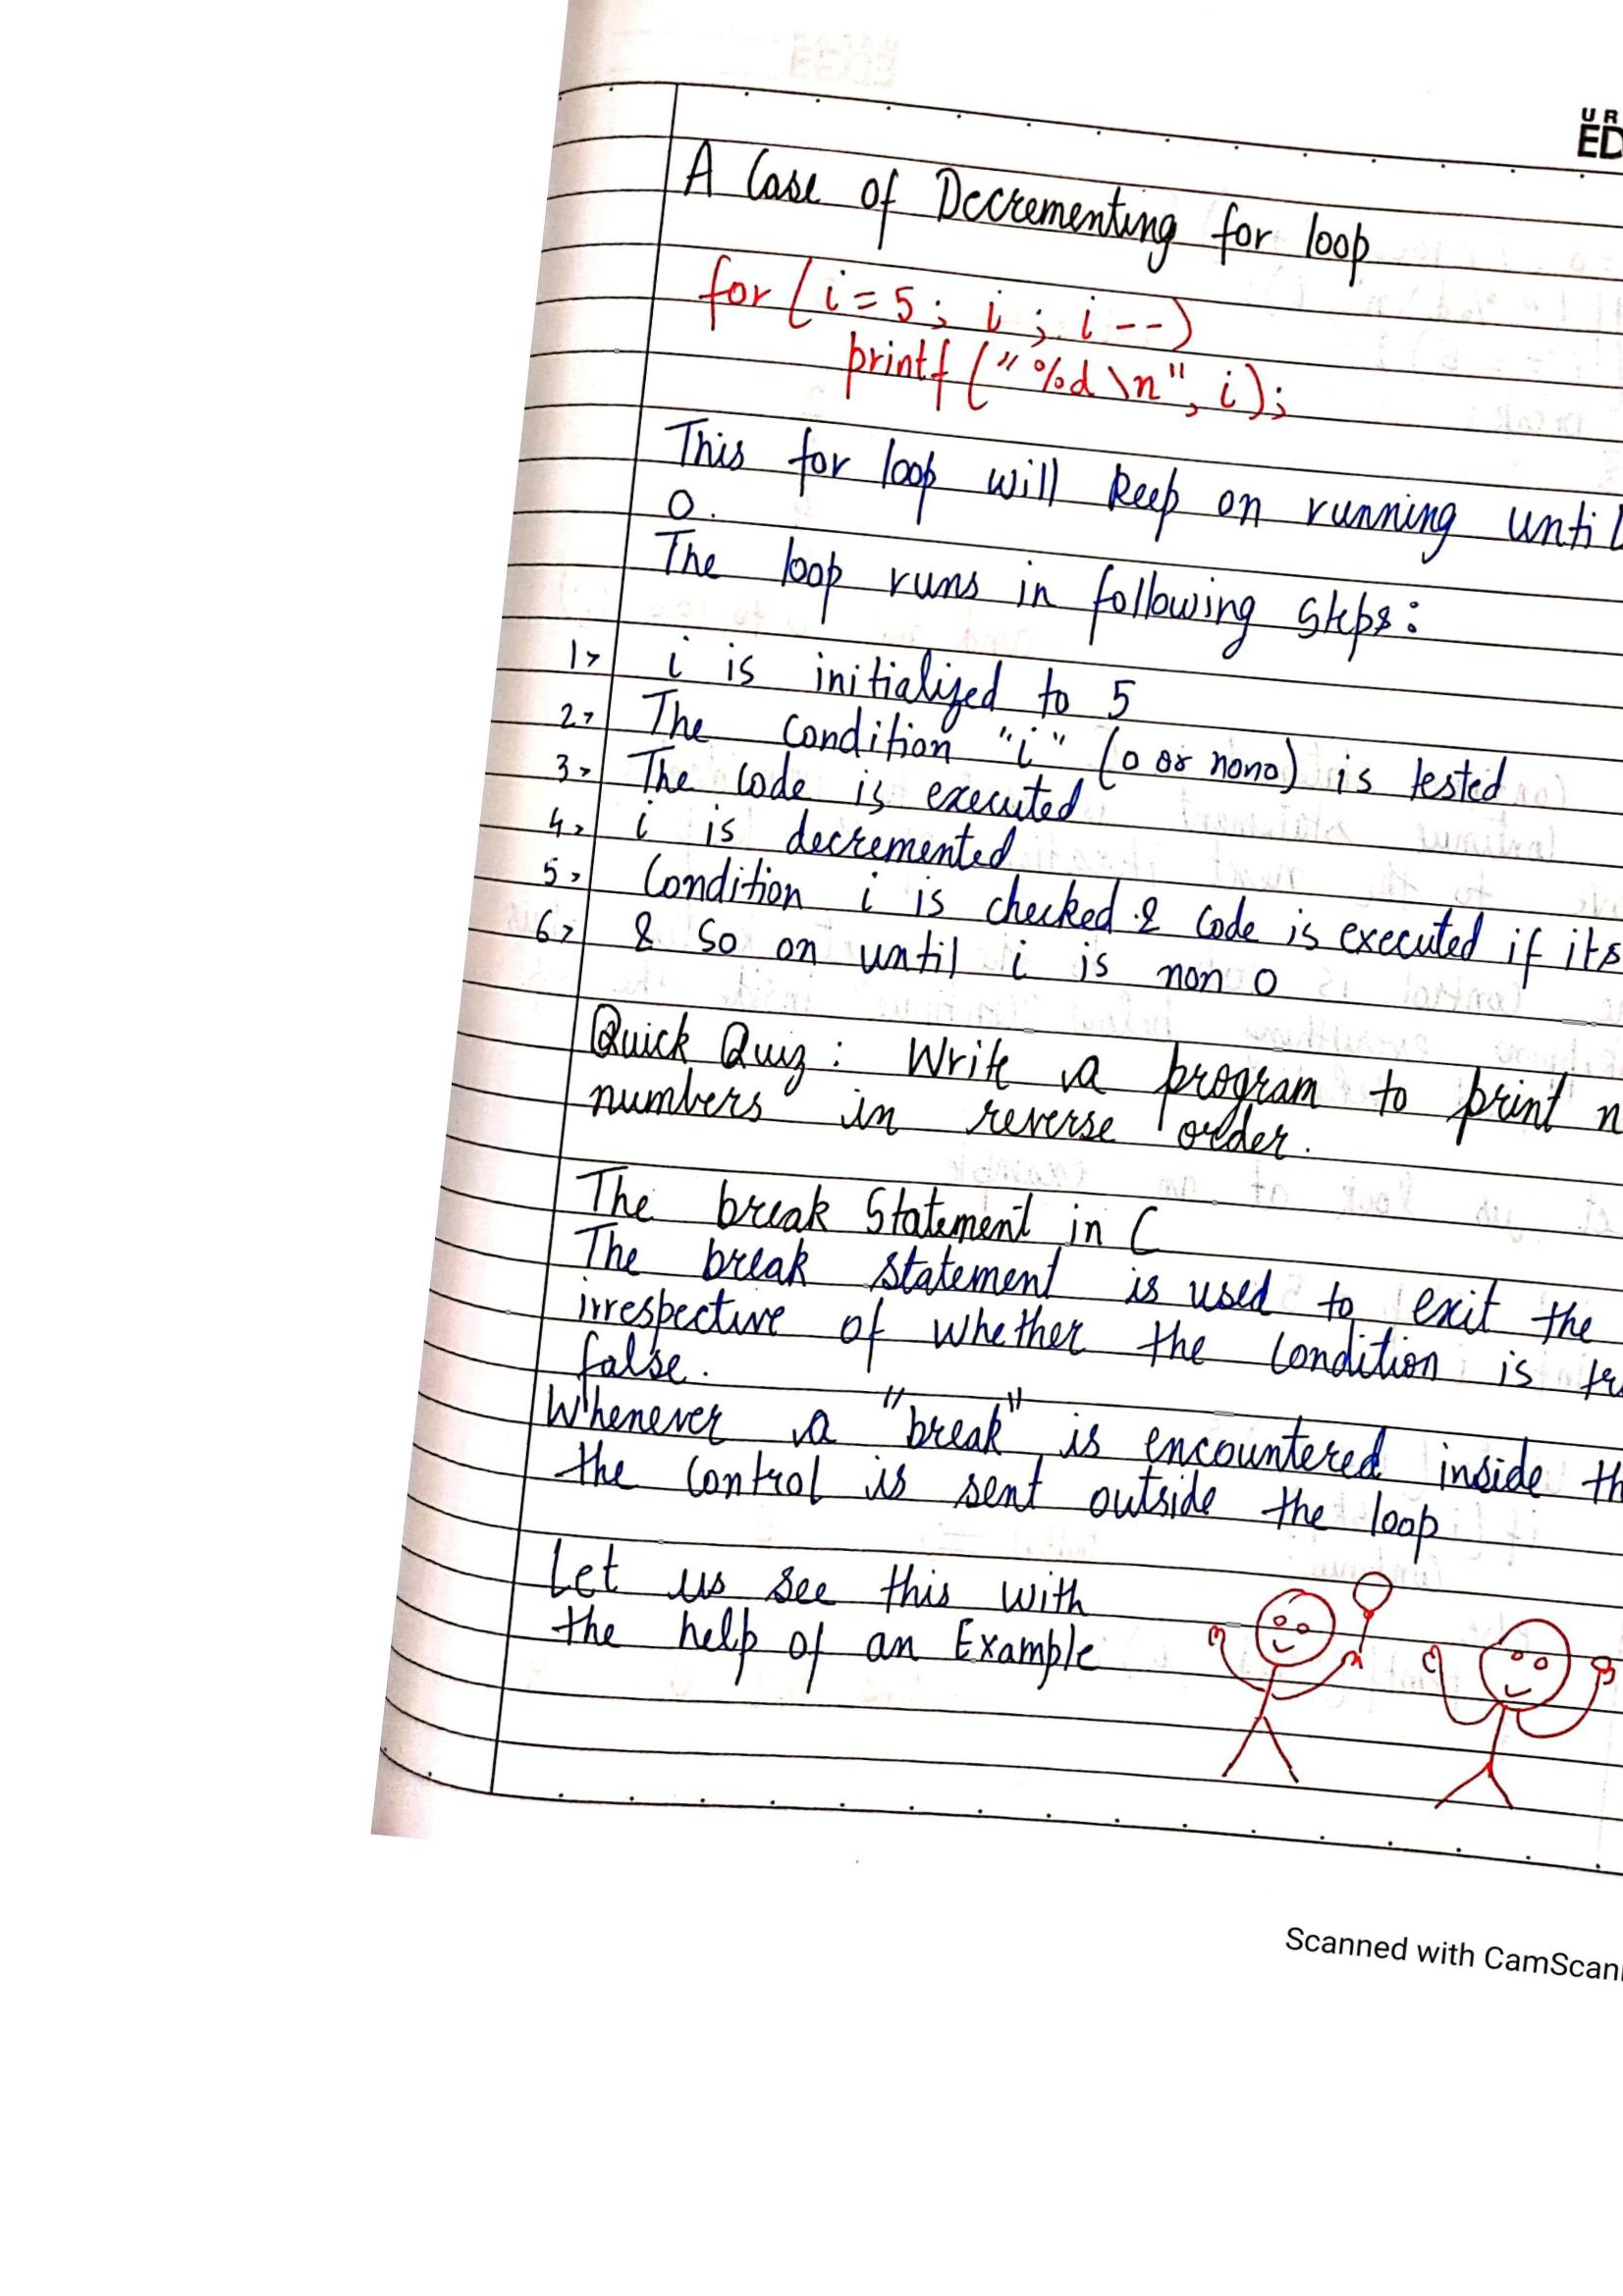 UR
ED
A Case of Decrementing for loop
for (i = 5; i; i--)
printf ("%d \n", i);
This for loop will keep on running until
0.
The loop runs in following steps:
1> i is initialized to 5
2> The condition "i" (0 or non0) is tested
3> The code is executed
4> i is decremented
5> Condition i is checked & code is executed if its
6> & so on until i is non 0
Quick Quiz : Write a program to print n
numbers in reverse order.
The break Statement in C
The break statement is used to exit the
irrespective of whether the condition is tru
false.
Whenever a "break" is encountered inside th
the control is sent outside the loop
Let us see this with
the help of an Example
Scanned with CamScan